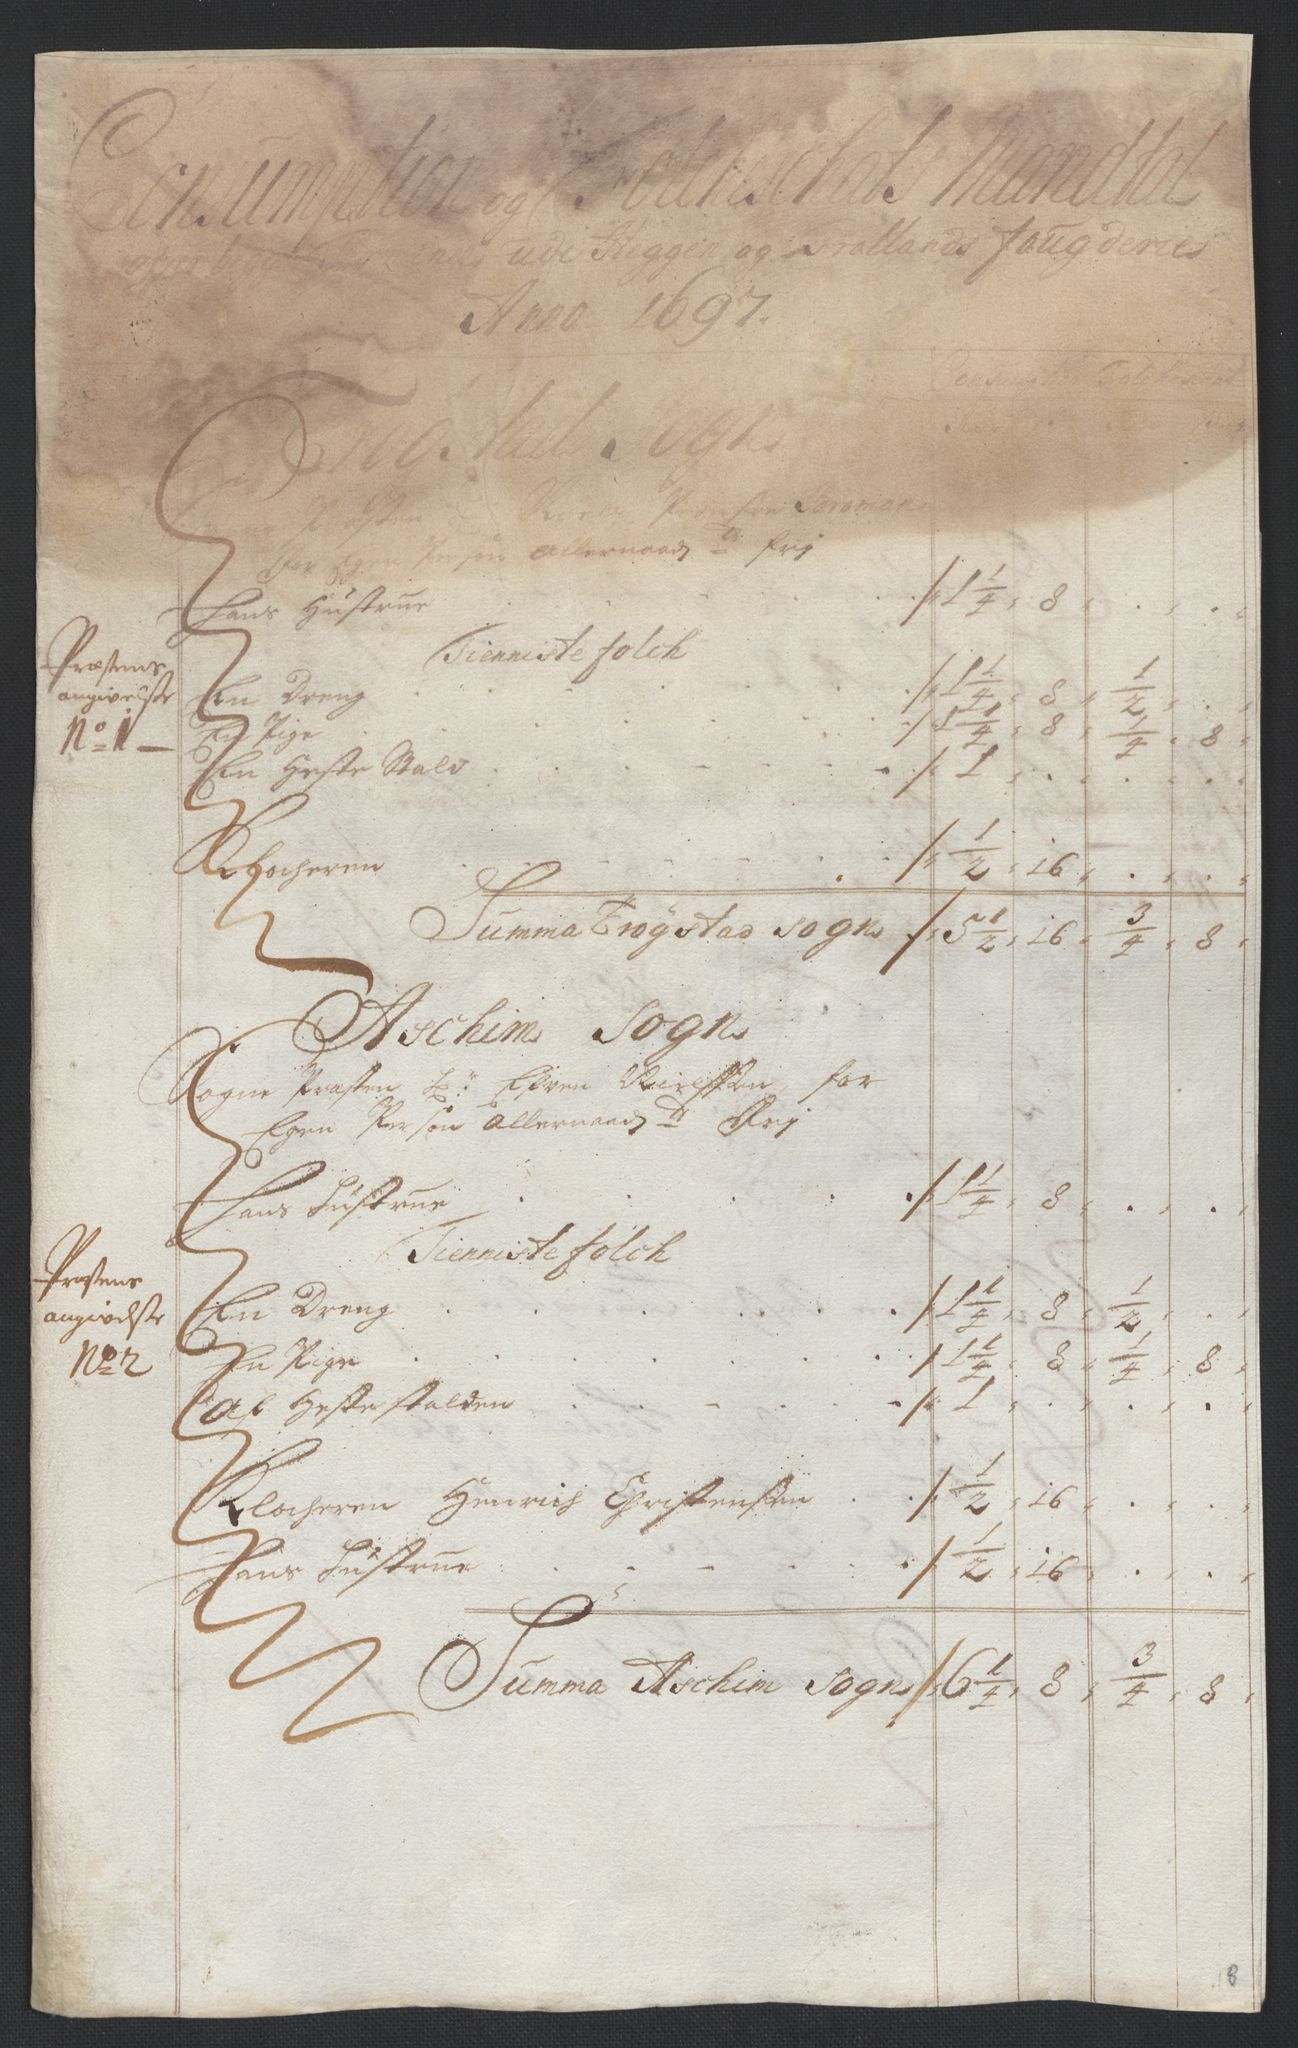 Consumption og Folcheschats Mandtal
ude Heggen og Frøllands faugderies
Anno 1697.
Consumption Folcheschat
Trøgstads Sogn
Præsten
for Egen Person allernaad: fri
Hans Hustrue /: 1 1/4 : 8 : . : . :
Tienniste folch
Præstens
angivelse
No 1 —
En Dreng /: 1 1/4 : 8 : 1/2 : . :
En Pige /: 1 1/4 : 8 : 1/4 : 8 :
En Heste Stald /: 1 : . : . : . :
Klocheren /: 1/2 : 16 : . : . :
Summa Trøgstad sogn /: 5 1/2 : 16 : 3/4 : 8 :
Aschim Sogn
Sogne Præsten Hr: for
Egen Person allernaad: fri
Hans Hustrue /: 1 1/4 : 8 : . : . :
Tienniste folch
Præstens
angivelse
No 2
En Dreng /: 1 1/4 : 8 : 1/2 : . :
En Pige /: 1 1/4 : 8 : 1/4 : 8 :
af Hestestalden /: 1 : . : . : . :
Klocheren Henrich Christensen /: 1/2 : 16 : . : . :
Hans Hustrue /: 1/2 : 16 : . : . :
Summa Aschim sogn /: 6 1/4 : 8 : 3/4 : 8 :
8